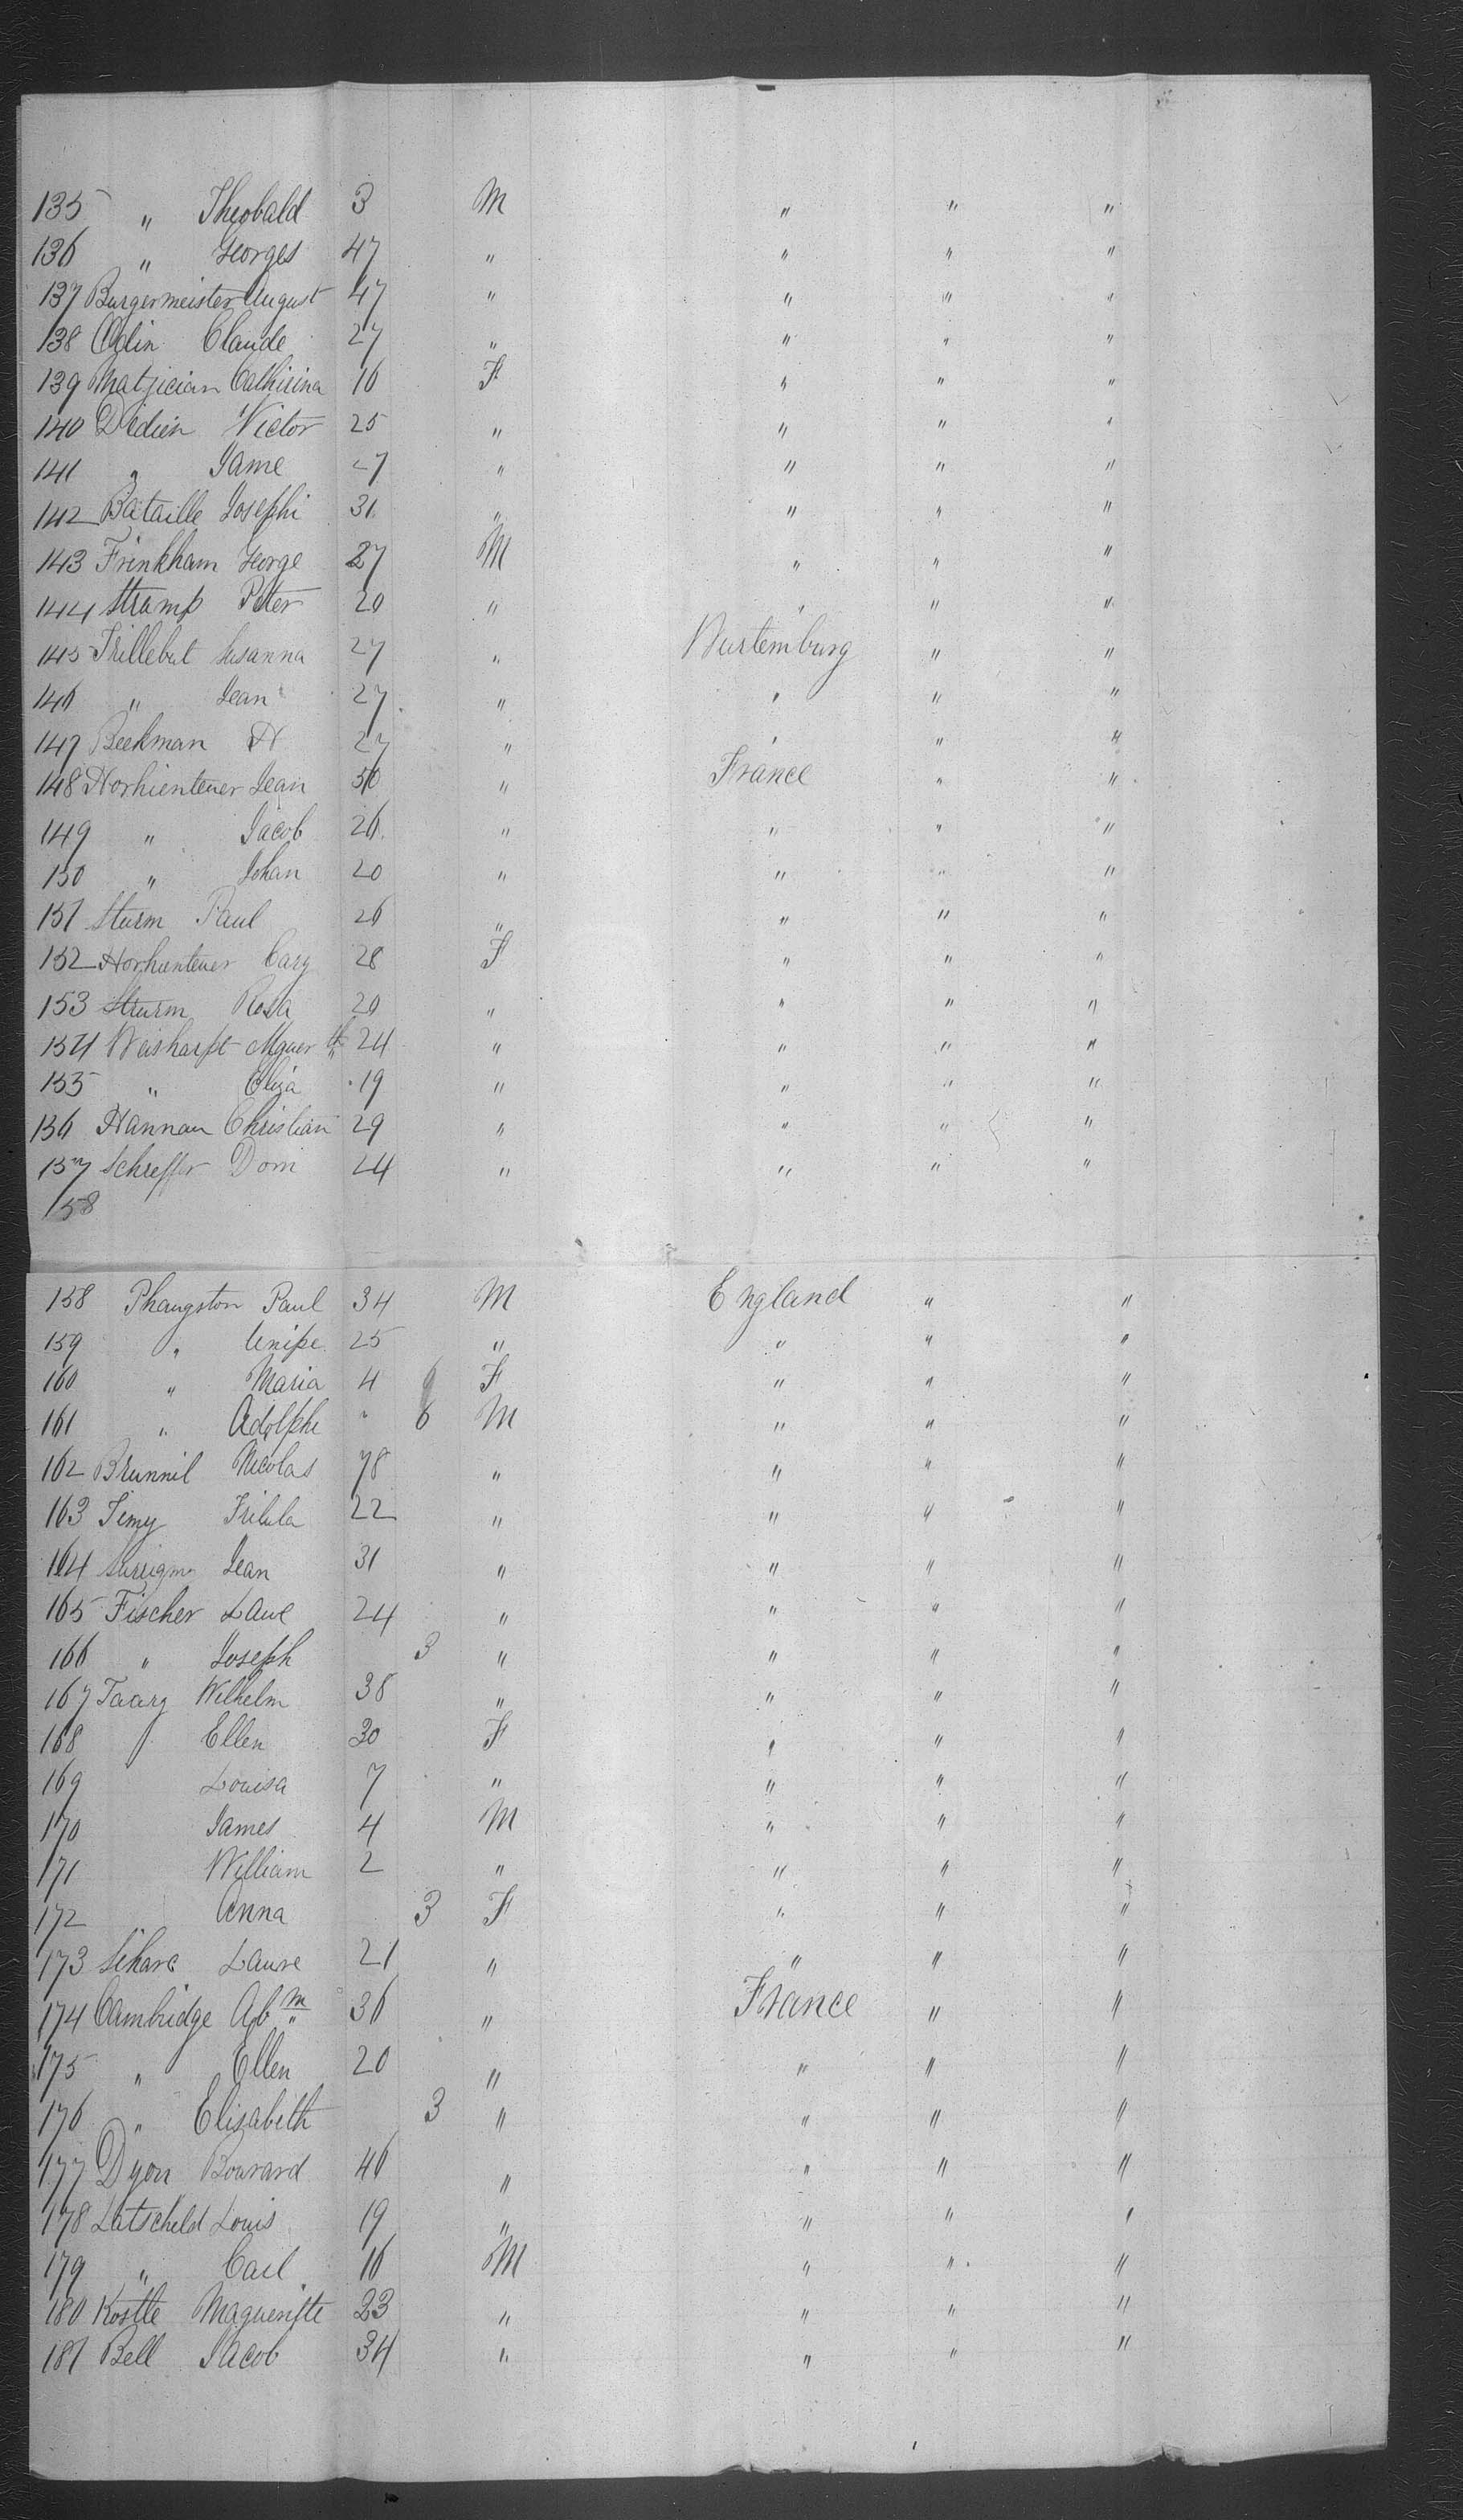 135 " Theobald 3 M " " "
136 " Georges 47 " " " "
137 Burgermeister August 47 " " " "
138 Odin Claude 27 " " " "
139 Matjician Cathirina 16 F " " "
140 Didien Victor 25 " " " "
141 " Jame 27 " " " "
142 Bataille Josephi 31 " " " "
143 Frinkham George 27 M " " "
144 Stramp Peter 20 " " " "
145 Trillebut Susanna 27 " Wurtemburg " "
146 " Jean 27 " " " "
147 Beekman H 27 " " " "
148 Horhientener Jean 50 " France " "
149 " Jacob 26 " " " "
150 " Johan 20 " " " "
151 Sturm Paul 26 " " " "
152 Horhientener Cary 28 F " " "
153 Sturm Rosa 20 " " " "
154 Weisharpt Mguerth 24 " " " "
155 " Eliza 19 " " " "
156 Hannau Christian 29 " " " "
157 Schreffer Dom 24 " " " "
158
158 Phaugston Paul 34 M England " "
159 " Unipe 25 " " " "
160 " Maria 4 9 F " " "
161 " Adolphe " 6 M " " "
162 Brunnil Nicolas 78 " " " "
163 Timy 22 " " " "
164 Jean 31 " " " "
165 Fischer Laue 24 " " " "
166 " Joseph 3 " " " "
167 Taarg Wilhelm 38 " " " "
168 Ellen 30 F " " "
169 Louisa 7 " " " "
170 James 4 M " " "
171 William 2 " " " "
172 Anna 3 F " " "
173 Schara Laure 21 " " " "
174 Cambridge Abm 36 " France " "
175 " Ellen 20 " " " "
176 " Elisabeth 3 " " " "
177 Dyon Bourard 46 " " " "
178 Latscheld Louis 19 " " " "
179 " Carl 16 M " " "
180 Kostle Maguerifte 23 " " " "
181 Bell Jacob 34 " " " "